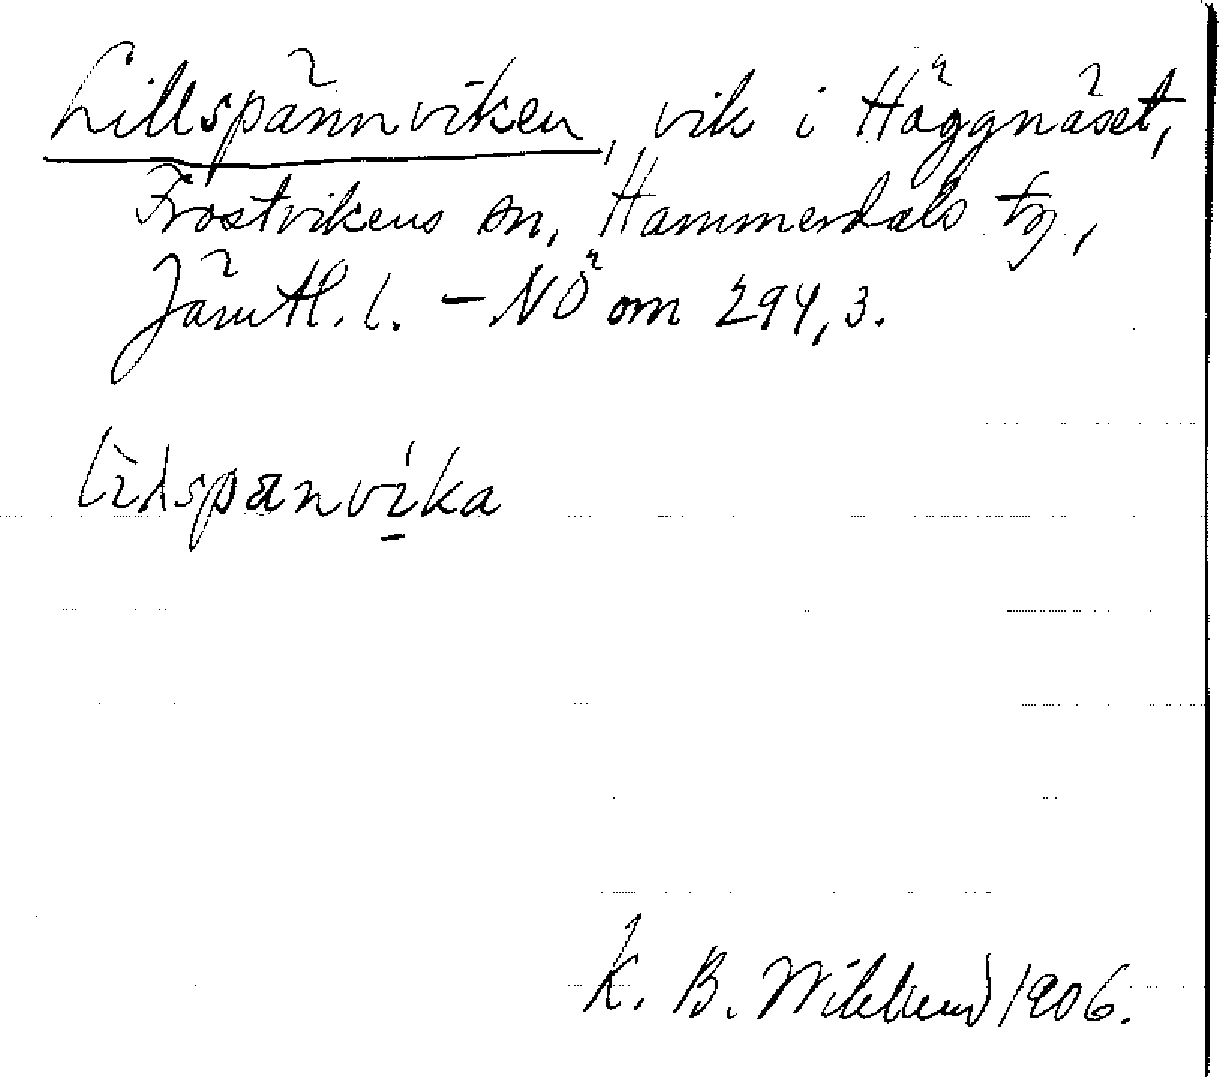 Lillspännviken, vik i Häggnäset,
Frostvikens sn, Hammerdals tg,
Jämtl. l. – NÖ om 294,3.
K. B. Wiklund 1906.